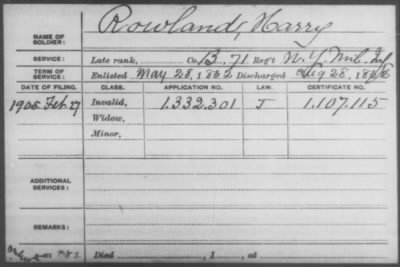 NAME OF SOLDIER: Rowland, Harry
SERVICE: Late rank, Co. B. 71 Reg't N. Y. Mil. Inf
TERM OF SERVICE: Enlisted May 28, 1862 Discharged Aug 28, 1862
DATE OF FILING. CLASS. APPLICATION NO. LAW. CERTIFICATE NO.
1908 Feb. 27 Invalid, 1.332.301 J 1.107.115
Widow,
Minor,
ADDITIONAL SERVICES:
REMARKS:
Died , 1 , at